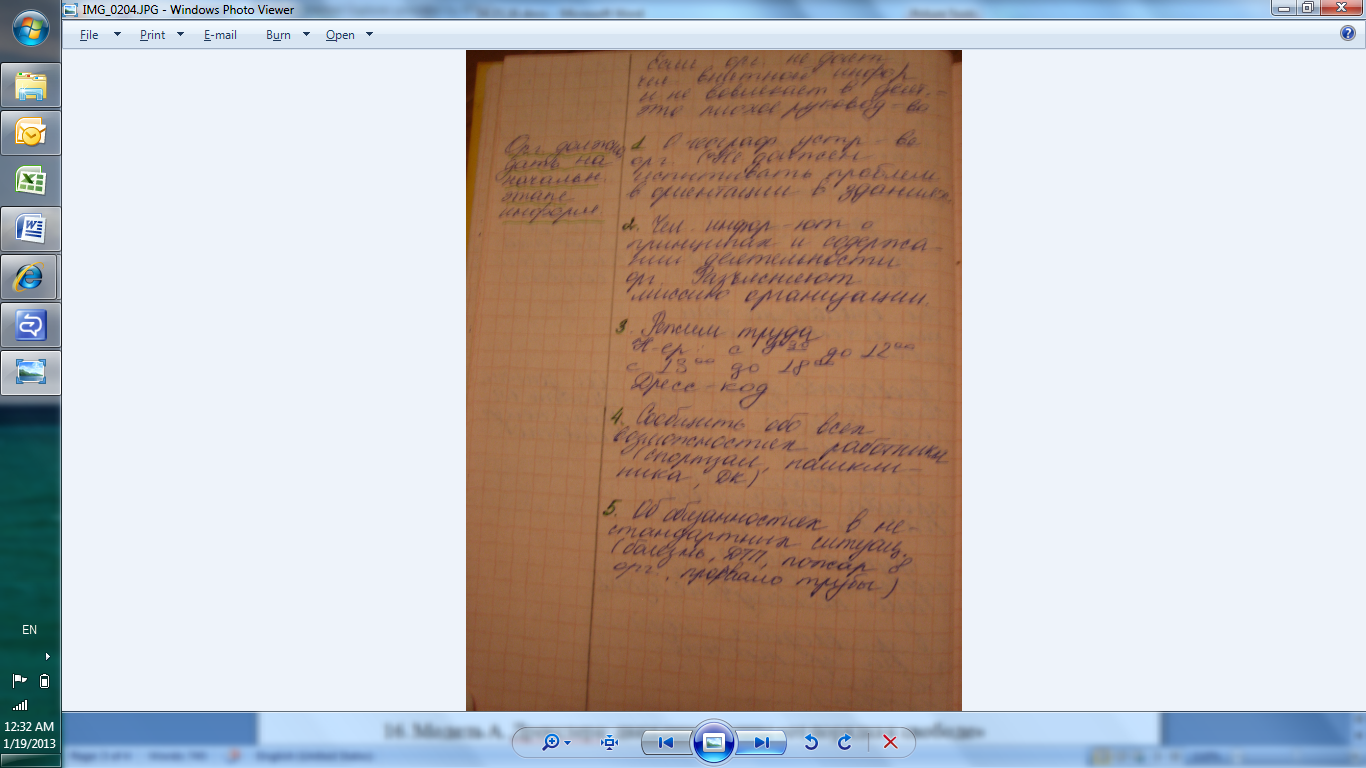 IMG_0204.JPG - Windows Photo Viewer
File Print E-mail Burn Open
Если орг. не дает
чел внятной инфор
и не вовлекает в деят. -
это плохое руковод-во
Орг должна
дать на
начальн.
этапе
информ.
1 О географ устр-ве
орг. Чел. не должен
испытывать проблем
в ориентации в здании.
2. Чел. инфор-ют о
принципах и содержа-
нии деятельности
орг. Разъясняют
миссию организации.
3. Режим труда
с до 12 00
с 13 00 до 18 00
Дресс-код
4. Сообщить обо всех
возможностях работника
(спортзал, поликли-
ника, ДК)
5. Об обязанностях в не-
стандартных ситуац.
(болезнь, ДТП, пожар в
орг., прорвало трубы)
EN
12:32 AM
1/19/2013
16. Модель А.